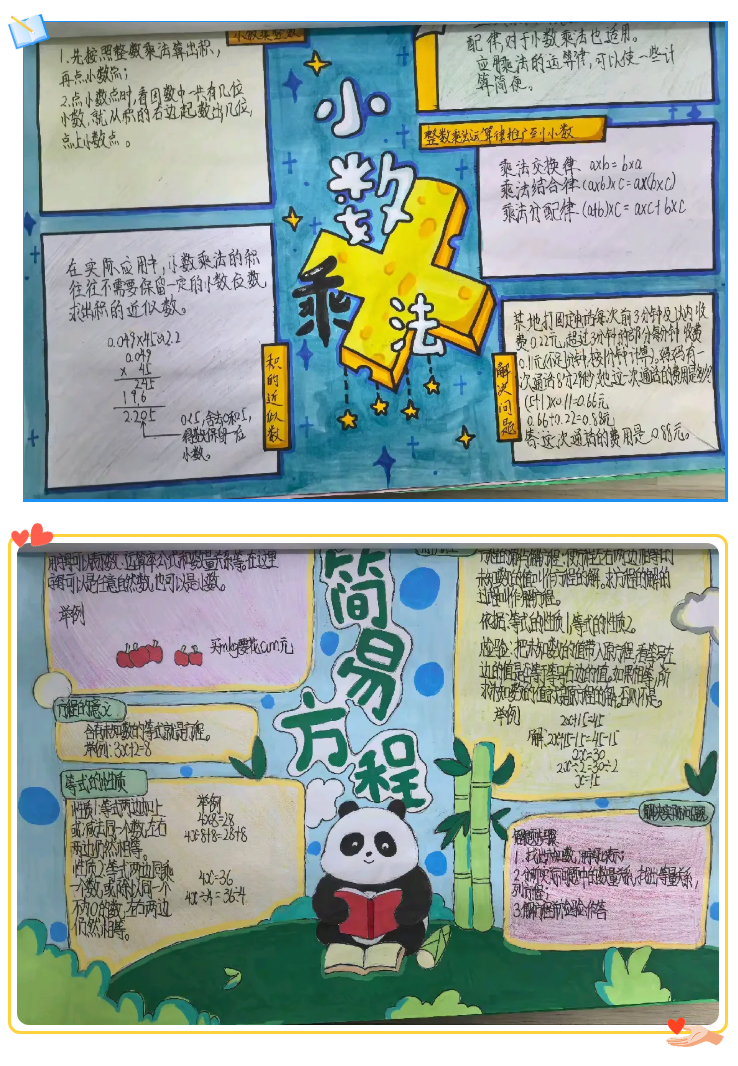 小数乘整数
1.先按照整数乘法算出积,
再点小数点;
2.点小数点时,看因数中一共有几位
小数,就从积的右边起数出几位,
点上小数点。
配律,对于小数乘法也适用。
应用乘法的运算律,可以使一些计
算简便。
小数
乘法
整数乘法运算律推广到小数
乘法交换律 a×b=b×a
乘法结合律(a×b)×c=a×(b×c)
乘法分配律(a+b)×c=a×c+b×c
在实际应用中,小数乘法的积
往往不需要保留一定的小数位数,
求出积的近似数。
0.049×45≈2.2
0.049
× 45
245
196
2.205
0<5,舍去0和5,
得数保留一位
小数。
积的近似数
解决问题
某地打固定电话每次前3分钟及以内收
费0.22元,超过3分钟的部分每分钟收费
0.11元(不足1分钟按1分钟计算)。妈妈有一
(5+1)×0.11=0.66元
0.66+0.22=0.88元
答:这次通话的费用是0.88元。
简易
方程
字母可以是任意自然数,也可以是小数。
举例
方程的意义
含有未知数的等式就是方程。
举例:3x+2=8
等式的性质
性质1:等式两边加上
或减去同一个数,左右
两边仍然相等。
性质2:等式两边同乘
一个数,或除以同一个
不为0的数,左右两边
仍然相等。
举例
4x=28
4x+8=28+8
4x=36
4x÷4=36÷4
未知数的值叫作方程的解。求方程的解的
过程叫作解方程。
依据:等式的性质1,等式的性质2。
检验:把未知数的值带入原方程,看等号左
边的值是否等于等号右边的值。如果相等,所
求未知数的值就是原方程的解,否则不是。
举例
2x+15=45
解:2x+15-15=45-15
2x=30
2x÷2=30÷2
x=15
解决实际问题
解题步骤:
1.找出未知数,用字母表示;
2.分析实际问题中的数量关系,找出等量关系,
列方程;
3.解方程并检验作答